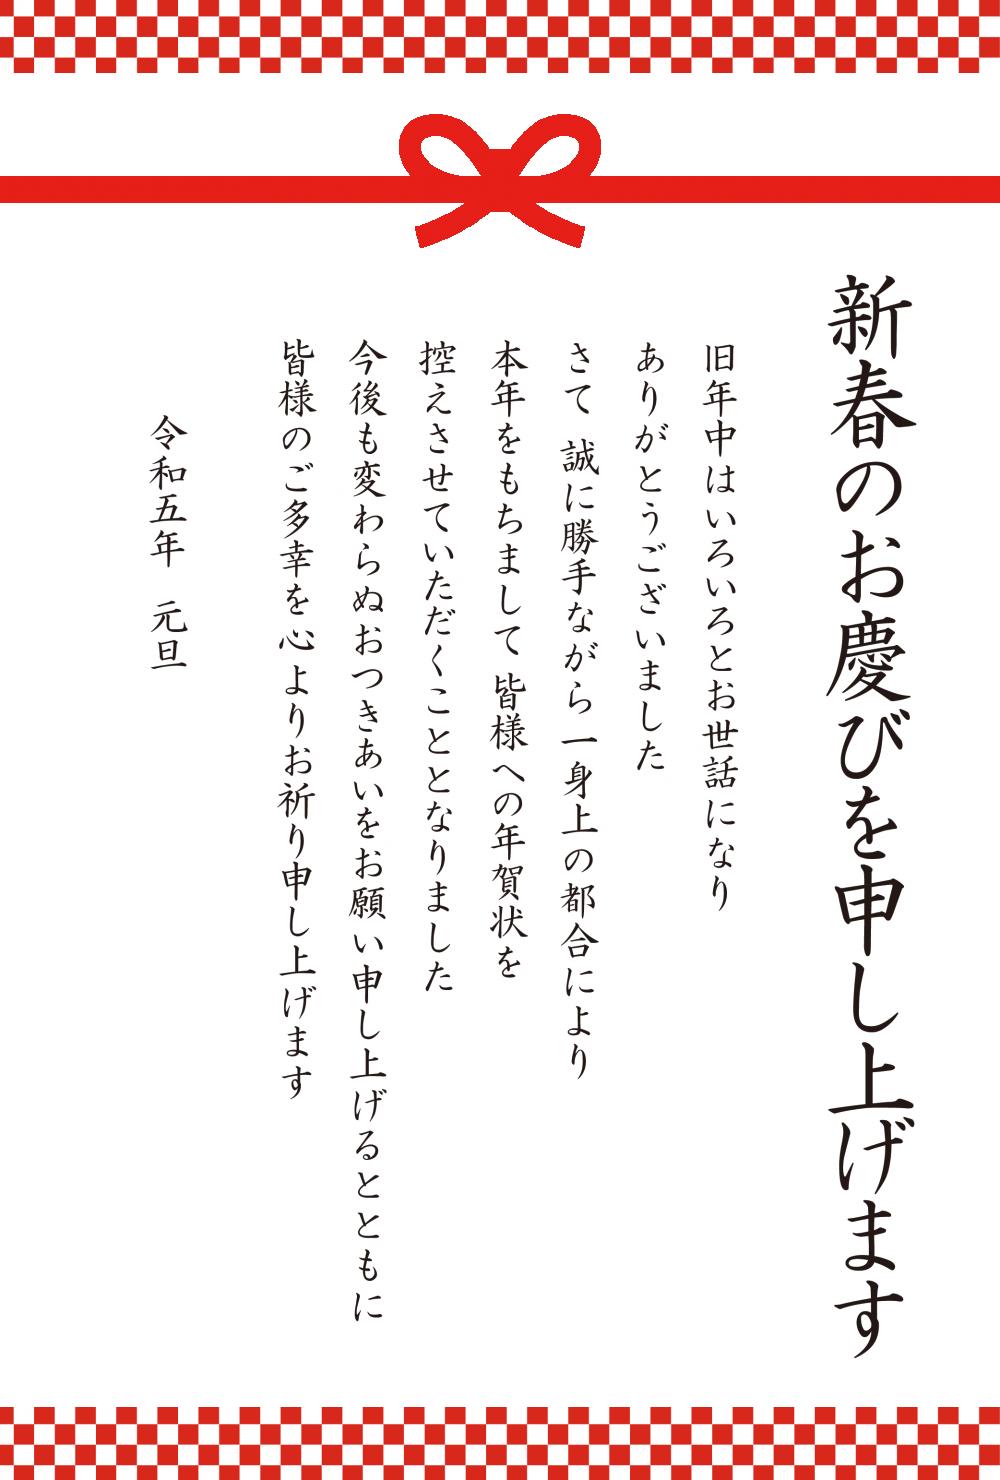 新春のお慶びを申し上げます
旧年中はいろいろとお世話になり
ありがとうございました
さて 誠に勝手ながら一身上の都合により
本年をもちまして 皆様への年賀状を
控えさせていただくこととなりました
今後も変わらぬおつきあいをお願い申し上げるとともに
皆様のご多幸を心よりお祈り申し上げます
令和五年 元旦